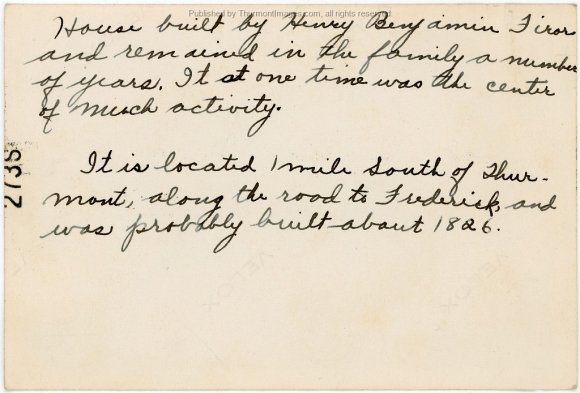 Published by ThurmontImages.com, all rights reserved.
House built by Henry Benjamin Firor
and remained in the family a number
of years. It at one time was the center
of much activity.
It is located 1 mile South of Thur-
mont, along the road to Frederick, and
was probably built about 1826.
2735
VELOX